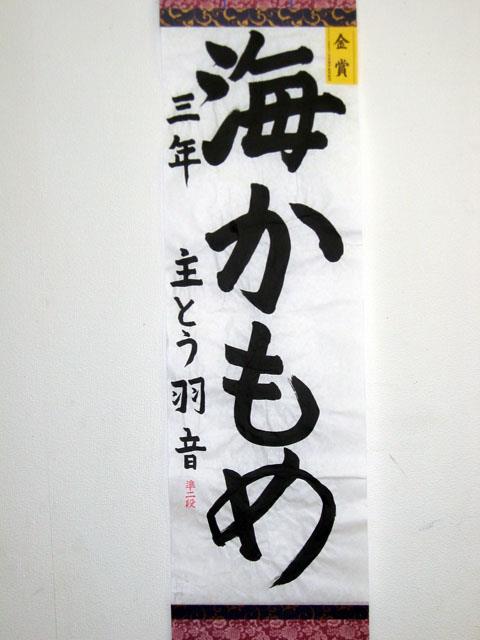 金賞
海かもめ
三年 主とう羽音
準二段